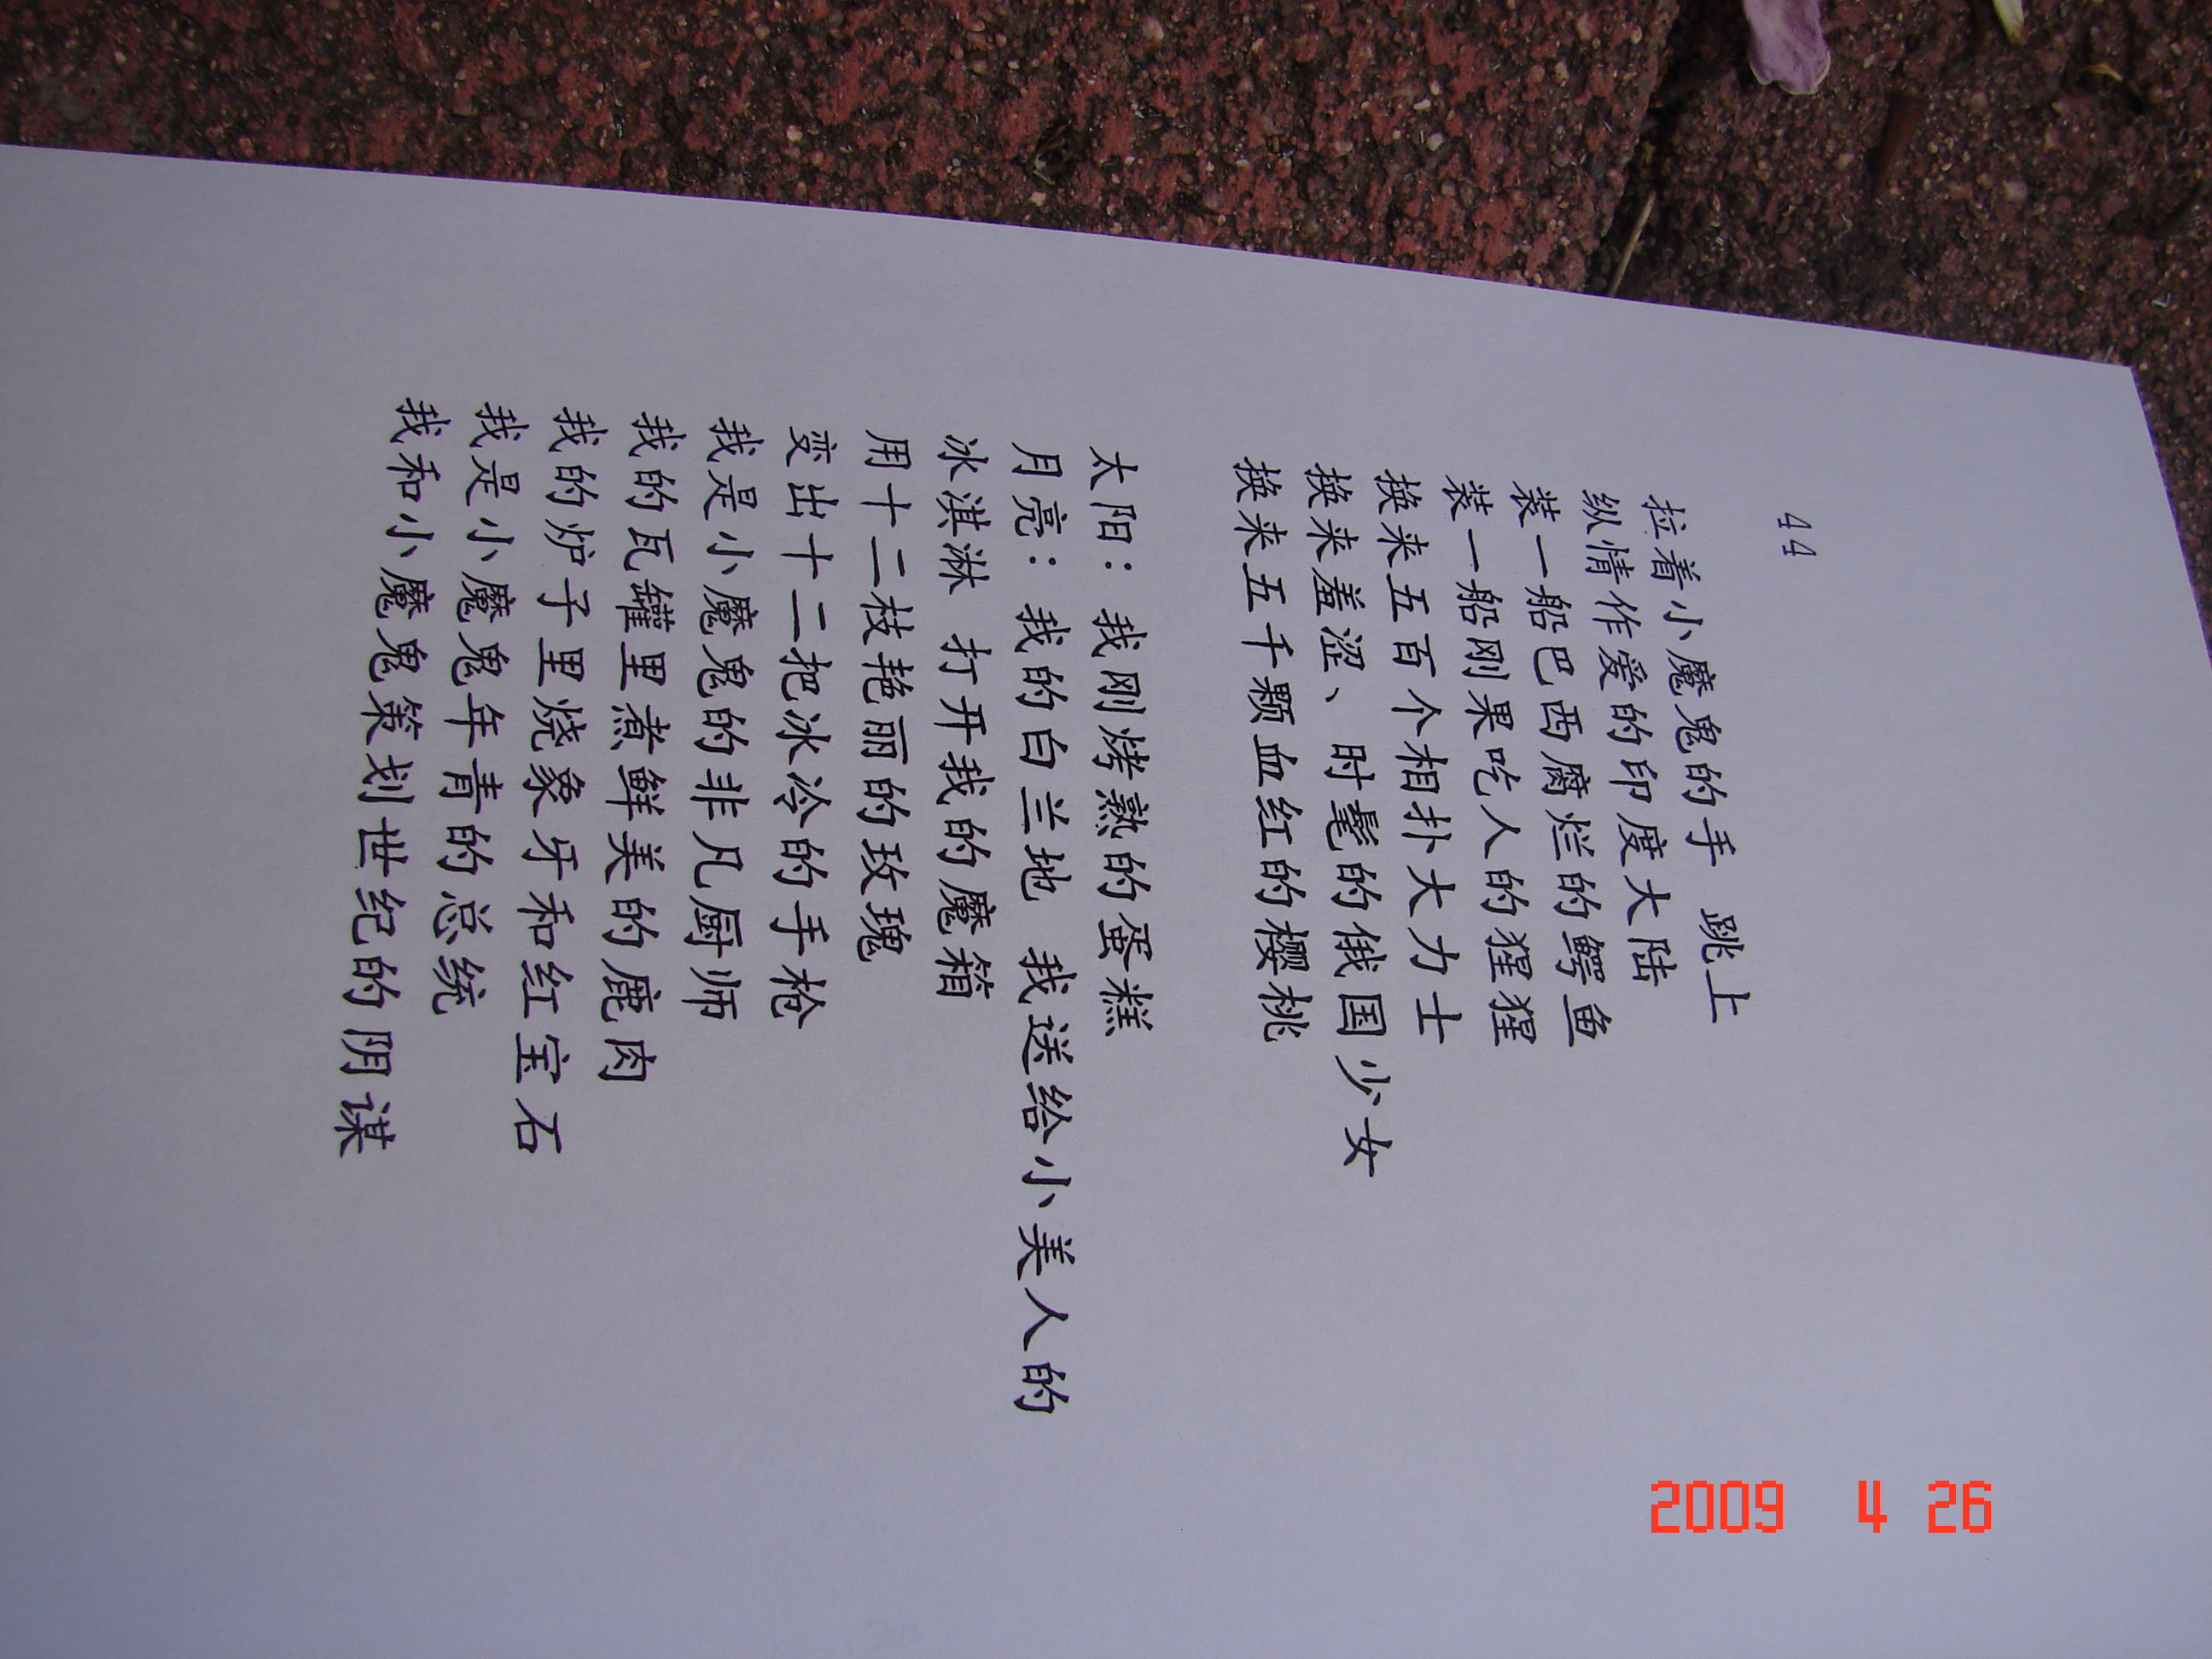 44
拉着小魔鬼的手 跳上
纵情作爱的印度大陆
装一船巴西腐烂的鳄鱼
装一船刚果吃人的猩猩
换来五百个相扑大力士
换来羞涩、时髦的俄国少女
换来五千颗血红的樱桃
太阳：我刚烤熟的蛋糕
月亮：我的白兰地 我送给小美人的
冰淇淋 打开我的魔箱
用十二枝艳丽的玫瑰
变出十二把冰冷的手枪
我是小魔鬼的非凡厨师
我的瓦罐里煮鲜美的鹿肉
我的炉子里烧象牙和红宝石
我是小魔鬼年青的总统
我和小魔鬼策划世纪的阴谋
2009 4 26